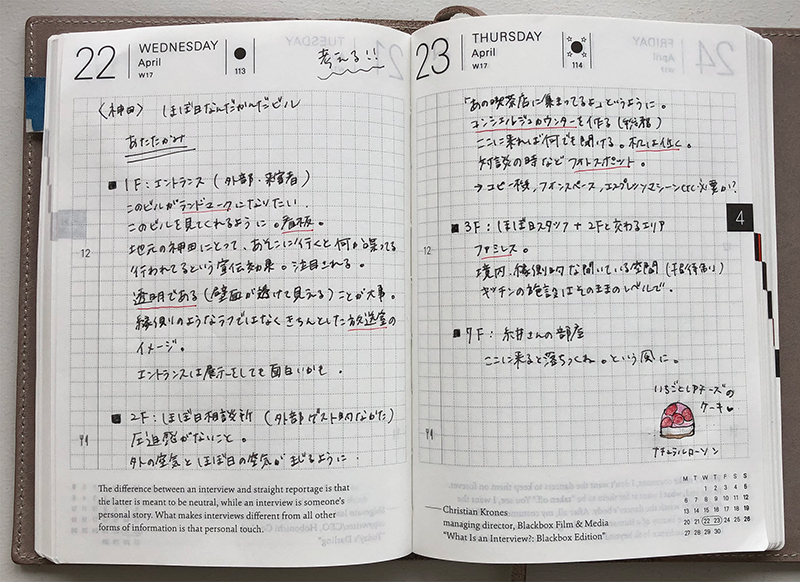 22
WEDNESDAY
April
W17
113
考える!!
〈神田〉 ほぼ日なんだかんだビル
あたたかみ
■ 1F：エントランス（外部・来客者）
このビルがランドマークになりたい。
このビルを見てくれるように。看板。
地元の神田にとって、あそこに行くと何か喋ってる
行われてるという宣伝効果。注目される。
透明である（壁面が透けて見える）ことが大事。
縁側のようなラフではなくきちんとした放送室の
イメージ。
エントランスは展示をしても面白いかも。
■ 2F：ほぼ日相談所（外部ゲスト的なかた）
圧迫感がないこと。
外の空気とほぼ日の空気がまじるように．
12
The difference between an interview and straight reportage is that
the latter is meant to be neutral, while an interview is someone's
personal story. What makes interviews different from all other
forms of information is that personal touch.
23
THURSDAY
April
W17
114
「あの喫茶店に集まってるよ」というように。
コンシェルジュカウンターを作る
ここに来れば何でも聞ける。机は低く。
対談の時などフォトスポット。
→コピー機，スペース，エスプレッソマシーンetc必要か?．
■ 3F：ほぼ日スタッフ + 2Fと交わるエリア
ファミレス。
境内・縁側的な開いている空間
キッチンの施設はそのままのレベルで．
■ 7F：糸井さんの部屋
ここに来ると落ちつくね。という風に．
12
4
いちごとレアチーズの
ケーキ♥
ナチュラルローソン
Christian Krones
managing director, Blackbox Film & Media
"What Is an Interview?: Blackbox Edition"
M T W T F S S
1 2 3 4 5
6 7 8 9 10 11 12
13 14 15 16 17 18 19
20 21 22 23 24 25 26
27 28 29 30